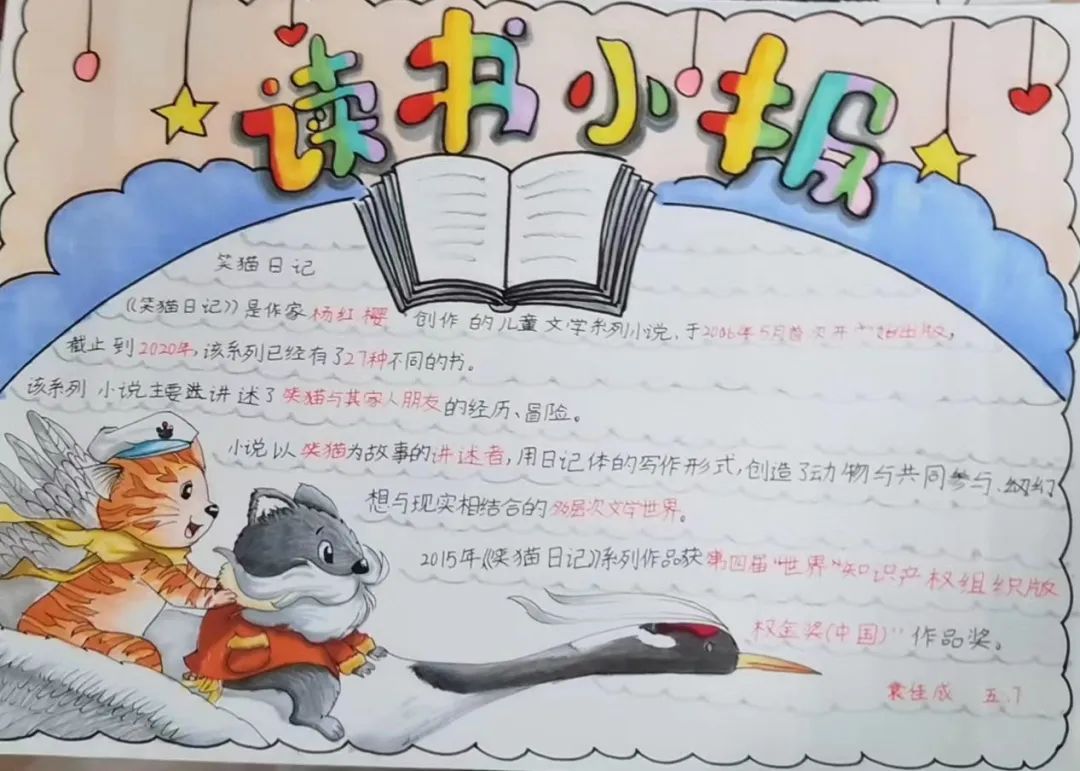 读书小报
笑猫日记
《笑猫日记》是作家杨红樱创作的儿童文学系列小说,于2006年5月首次开出版,
截止到2020年,该系列已经有了27种不同的书。
该系列小说主要选讲述了笑猫与其家人朋友的经历、冒险。
小说以笑猫为故事的讲述者,用日记体的写作形式,创造了动物与共同参与、
想与现实相结合的多层次文学世界。
2015年《笑猫日记》系列作品获第四届"世界"知识产权组织版
权金奖(中国)"作品奖。
袁佳成 五.7